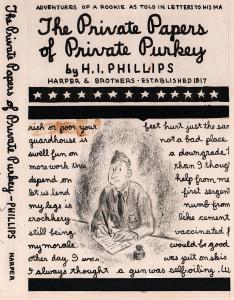 The Private Papers of Private Purkey — PHILLIPS
HARPER
ADVENTURES OF A ROOKIE AS TOLD IN LETTERS TO HIS MA
The Private Papers
of Private Purkey
by H.I. PHILLIPS
HARPER & BROTHERS - ESTABLISHED 1817
rich or poor your feet hurt just the sa
guardhouse is not a bad place
swell fun on a downgrade
more work thi than I though
depend on help from me
let us lend first sergean
my legs is numb from
crockery like cement
still being vaccinated f
my morale would be good
other day I was was put on skis
I always thought a gun was self-oiling.